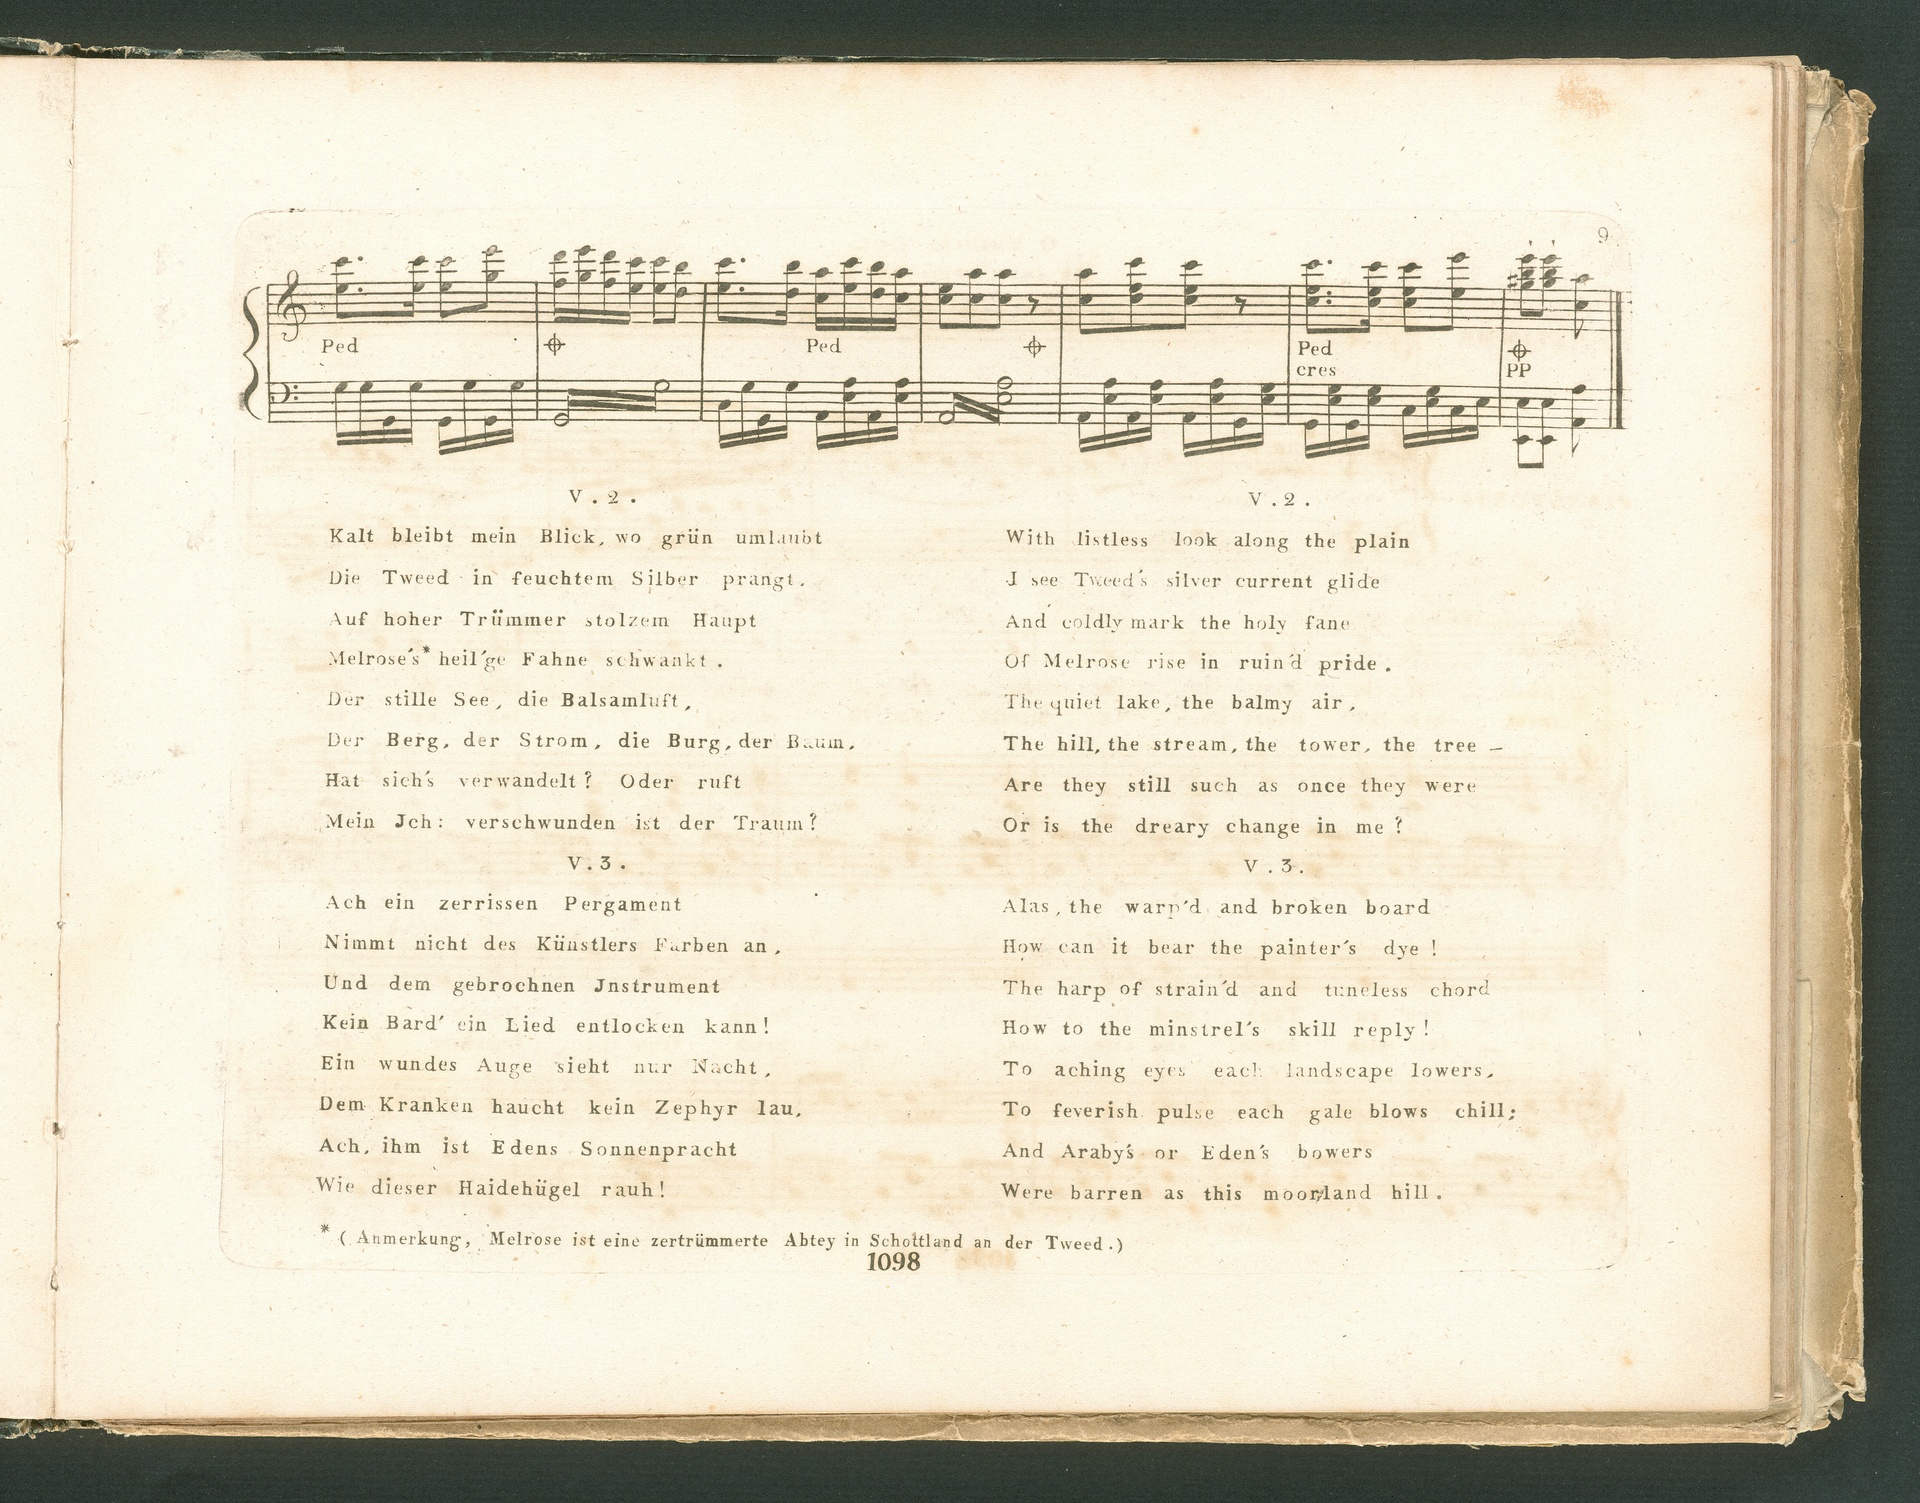 9
Ped
Ped
Ped
cres
PP
V.2.
Kalt bleibt mein Blick, wo grün umlaubt
Die Tweed in feuchtem Silber prangt.
Auf hoher Trümmer stolzem Haupt
Melrose's* heil'ge Fahne schwankt.
Der stille See, die Balsamluft,
Der Berg, der Strom, die Burg, der Baum,
Hat sich's verwandelt? Oder ruft
Mein Jch: verschwunden ist der Traum?
V.3.
Ach ein zerrissen Pergament
Nimmt nicht des Künstlers Farben an,
Und dem gebrochnen Jnstrument
Kein Bard' ein Lied entlocken kann!
Ein wundes Auge sieht nur Nacht,
Dem Kranken haucht kein Zephyr lau,
Ach, ihm ist Edens Sonnenpracht
Wie dieser Haidehügel rauh!
V.2.
With listless look along the plain
J see Tweed's silver current glide
And coldly mark the holy fane
Of Melrose rise in ruin'd pride.
The quiet lake, the balmy air,
The hill, the stream, the tower, the tree –
Are they still such as once they were
Or is the dreary change in me?
V.3.
Alas, the warp'd and broken board
How can it bear the painter's dye!
The harp of strain'd and tuneless chord
How to the minstrel's skill reply!
To aching eyes each landscape lowers,
To feverish pulse each gale blows chill;
And Araby's or Eden's bowers
Were barren as this moorland hill.
* (Anmerkung, Melrose ist eine zertrümmerte Abtey in Schottland an der Tweed.)
1098